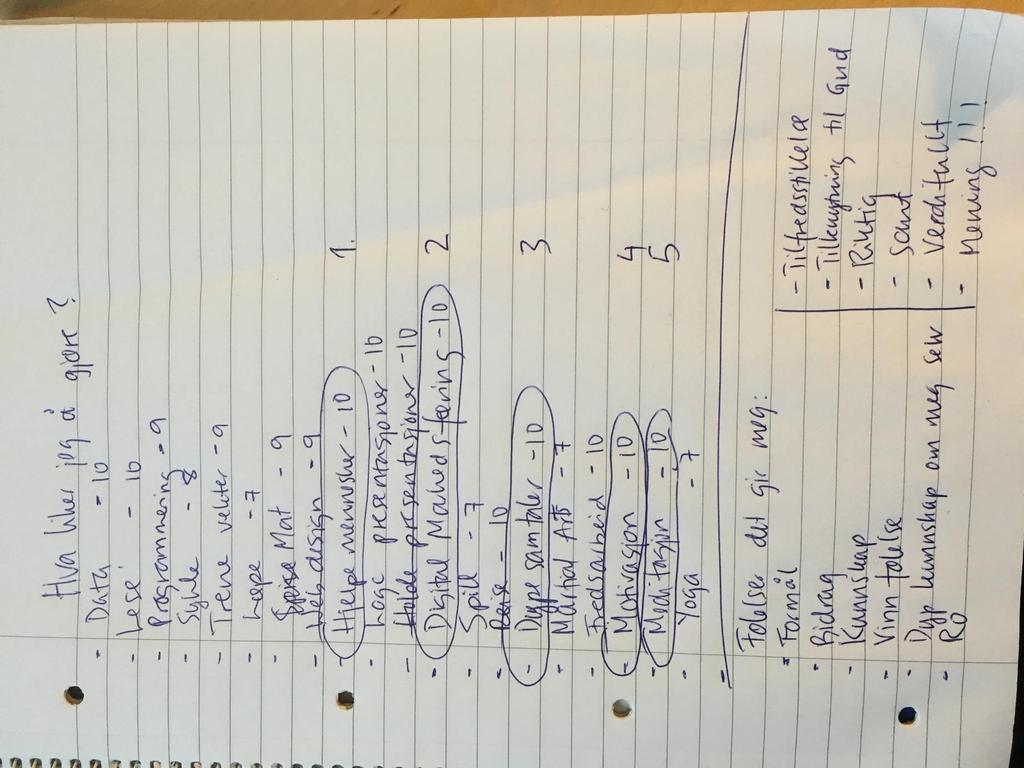 Hva liker jeg å gjøre ?
- Data - 10
- Lese - 10
- Programmering - 9
- Sykle - 8
- Trene vekter - 9
- Løpe - 7
- Spise Mat - 9
- Web design - 9
- Hjelpe mennesker - 10 1.
- Lage presentasjoner - 10
- Holde presentasjoner - 10
- Digital Markedsføring - 10 2
- Spill - 7
- Reise - 10
- Dype samtaler - 10 3
- Martial Arts - 7
- Fredsarbeid - 10
- Motivasjon - 10 4
- Meditasjon - 10 5
- Yoga - 7
-
Følelser det gir meg:
- Formål - Tilfredsstillelse
- Bidrag - Tilknytning til Gud
- Kunnskap - Riktig
- Vinn følelse - Sant
- Dyp kunnskap om meg selv - Verdifullt
- Ro - Mening !!!